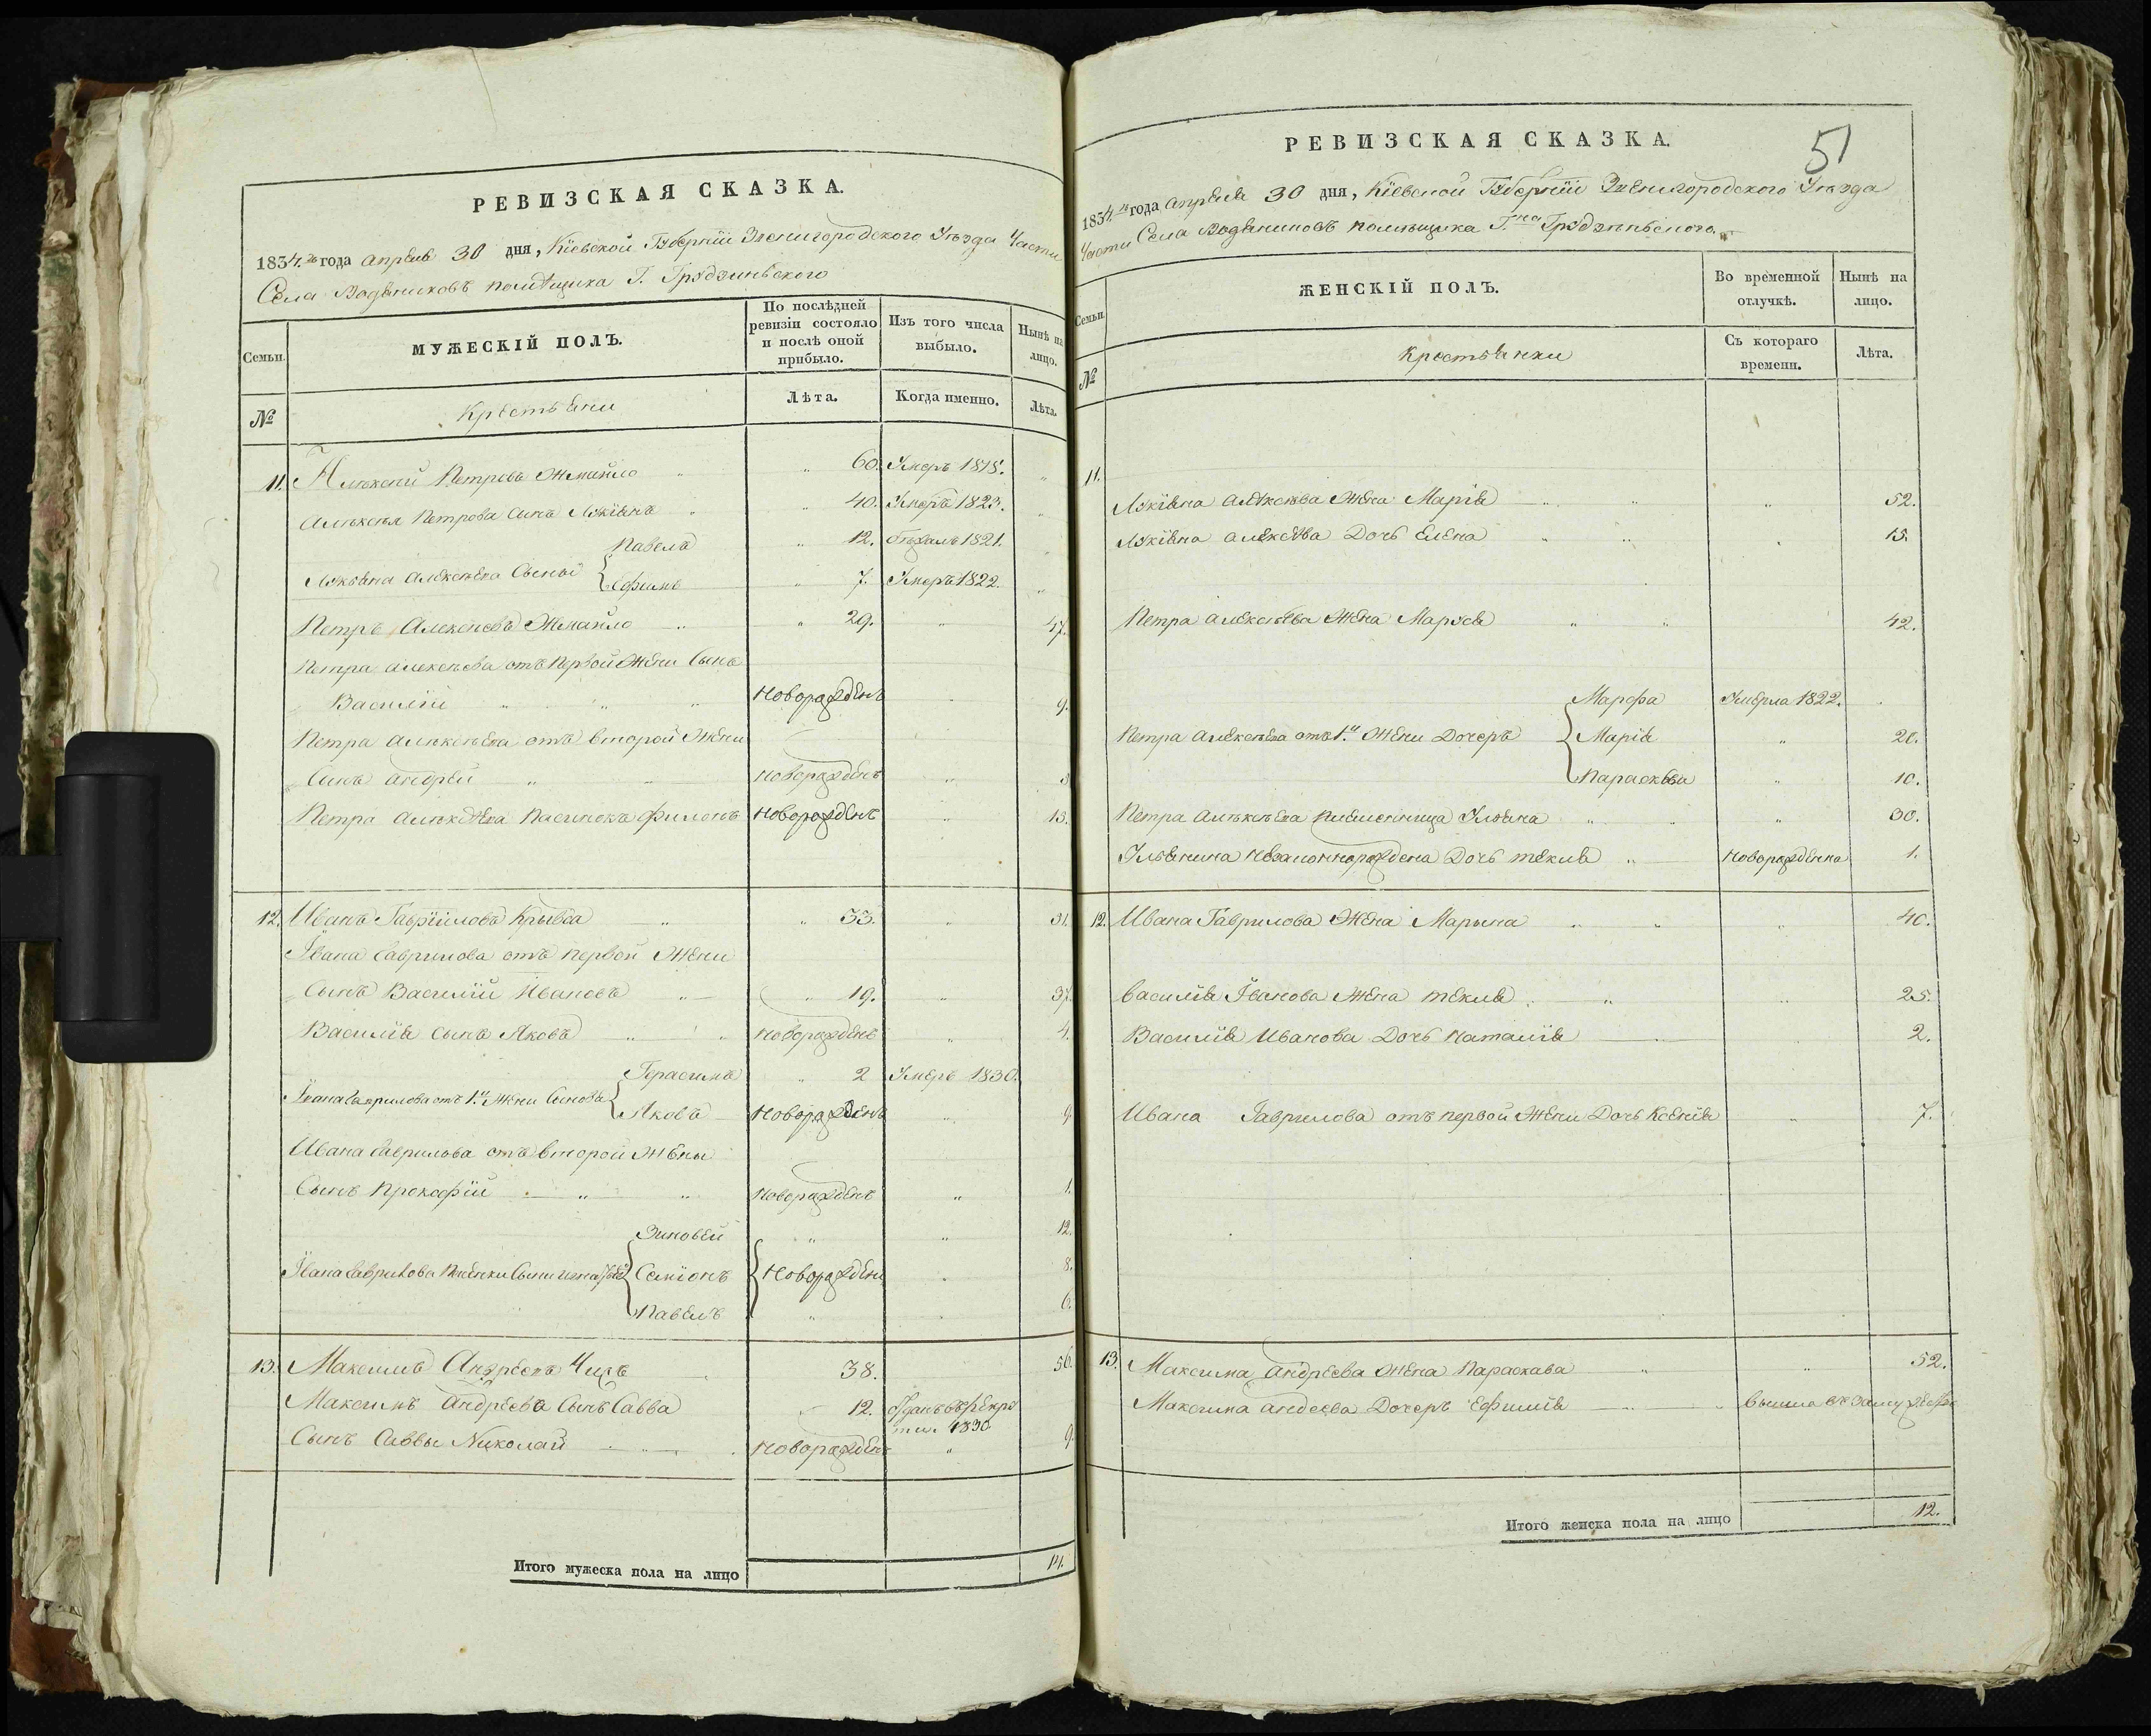 РЕВИЗСКАЯ СКАЗКА.
1834.го года апреля 30 дня, Кіевской Губерніи Звенигородского Уѣзда Части
Села Водяниковъ помѣщика Г. Грудзиньского
Семьи.
МУЖЕСКІЙ ПОЛЪ.
По послѣдней ревизіи состояло и послѣ оной прибыло.
Изъ того числа выбыло.
Нынѣ на лицо.
№
Крестьяни
Лѣта.
Когда именно.
Лѣта.
11. Алѣксѣй Петровъ Жмайло 60. Умеръ 1818.
Алѣксѣя Петрова Сынъ Лукіянъ 40. Умеръ 1823.
Павелъ 12. бѣжалъ 1821.
Лукьяна Алексѣева Сыны
Ефимъ 7. Умеръ 1822.
Петръ Алексѣевъ Жмайло 29. 47.
Петра Алексѣева отъ первой Жени Сынъ
Василій Новорожденъ 9.
Петра Алѣксѣева отъ второй Жени
Синъ Андрей Новорожденъ 3
Петра Алѣксѣева Пасинокъ Филонъ Новорожденъ 13.
12. Иванъ Гавріиловъ Крывда 33. 51.
Івана Гаврилова отъ первой Жени
Сынъ Василій Ивановъ 19. 37.
Василія Сынъ Яковъ Новорожденъ 4.
Герасимъ 2 Умеръ 1830.
Івана Гаврилова отъ 1.й Жени Синовя
Яковъ Новорожденъ 9
Ивана Гаврилова отъ второй Жены
Сынъ Прокофій Новорожденъ 1.
Зиновей 12.
Івана Гаврилова Сыни Семіонъ Новорождени 8.
Павелъ 6.
13. Максимъ Андреевъ Чижъ 38. 56.
Максимъ Андреева Сынъ Савва 12. Отданъ въ рекру
ти. 1830
Сынъ Саввы Николай Новорожденъ 9.
Итого мужеска пола на лицо 14.
РЕВИЗСКАЯ СКАЗКА.
51
1834.го года апреля 30 дня, Кіевской Губерніи Звенигородского Уѣзда
Части Села Водяниковъ помѣщика Г.на Грудзиньского.
Семьи.
ЖЕНСКІЙ ПОЛЪ.
Во временной отлучкѣ.
Нынѣ на лицо.
№
Крестьянки
Съ котораго времени.
Лѣта.
11.
Лукіяна Алѣксѣева Жена Марія 52.
Лукіяна Алексѣева Дочь Елена 15.
Петра Алексѣева Жена Маруся 42.
Марфа Умерла 1822.
Петра Алексѣева отъ 1.й Жени Дочеръ Марія 20.
Параскева 10.
Петра Алѣксѣева племенница Ульяна 30.
Ульянина незаконнорождена Дочь Текля Новорожденна 1.
12. Ивана Гаврилова Жена Марына 40.
Василія Іванова Жена Текля 25.
Василія Иванова Дочь Наталія 2.
Ивана Гаврилова отъ первой Жени Дочь Ксенія 7.
13. Максима Андреева Жена Параскава 52.
Максима Андеева Дочеръ Ефимія Вышла въ замужество
Итого женска пола на лицо 12.